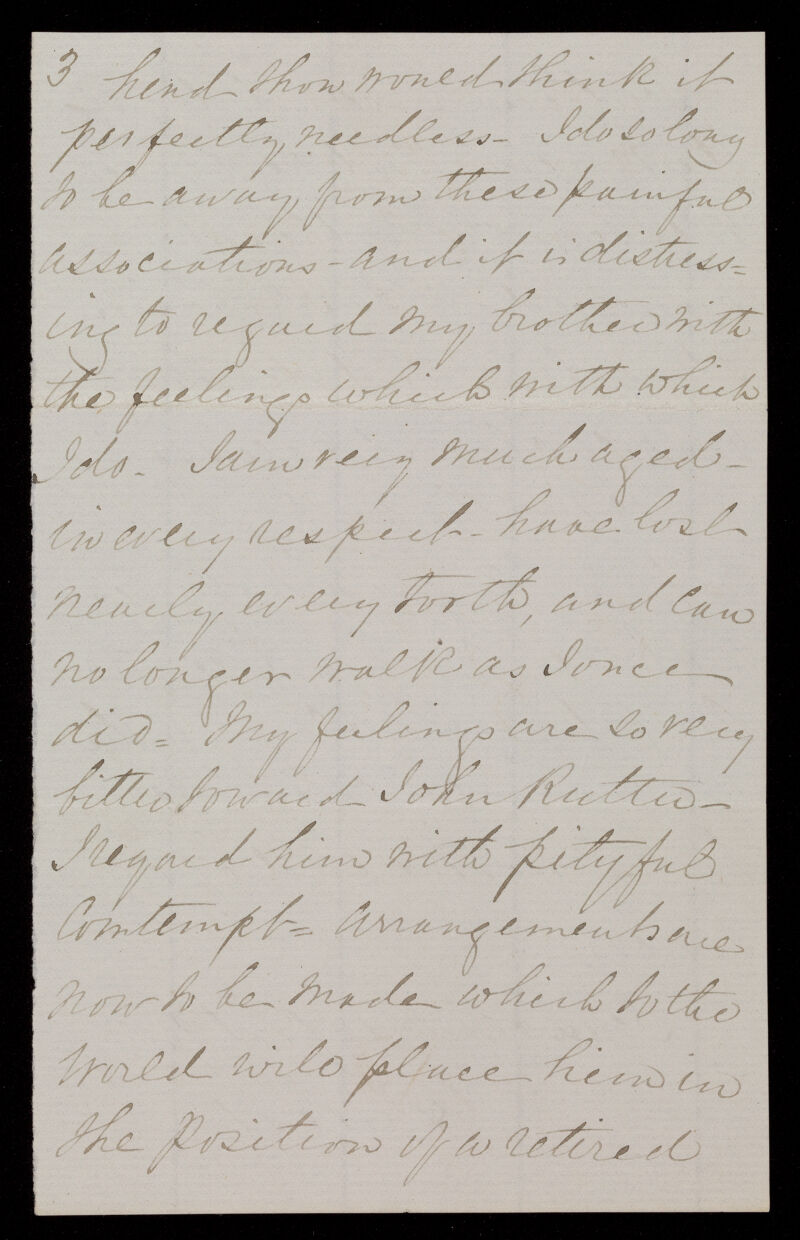 3 hend thou would think it
perfectly needless - I do so long
to be away from these painful
associations - and it is distress=
ing to regard my brother with
the feelings which with which
I do - I am very much aged -
in every respect - have lost
nearly every torth, and can
no longer walk as I once
did = My feelings are so very
bitter toward John Rutter -
I regard him with pityful
Comtempt = arrangements are
now to be made which to the
World will place him in
the position of a retired